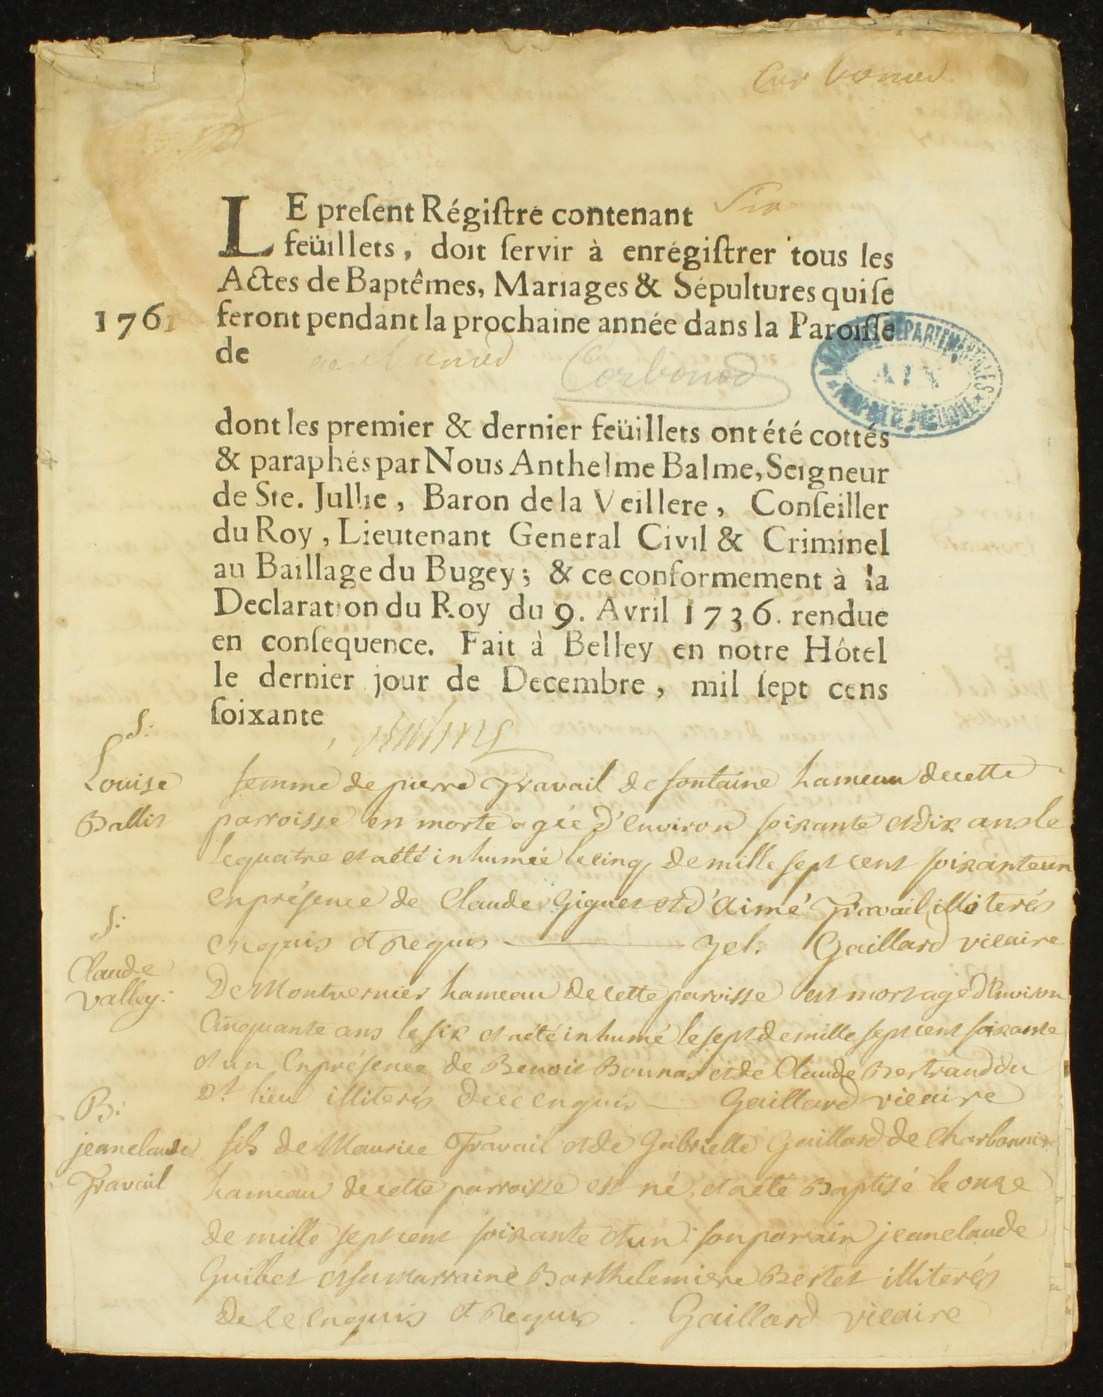 Corbonod
LE present Régistre contenant Six
feüillets, doit servir à enrégistrer tous les
Actes de Baptêmes, Mariages & Sépultures qui se
1761 feront pendant la prochaine année dans la Paroisse
de Corbonod
ARCHIVES DEPARTEMENTALES
AIN
dont les premier & dernier feüillets ont été cottés
& paraphés par Nous Anthelme Balme, Seigneur
de Ste. Jullie, Baron de la Veillere, Conseiller
du Roy, Lieutenant General Civil & Criminel
au Baillage du Bugey; & ce conformement à la
Declaration du Roy du 9. Avril 1736. rendue
en consequence. Fait à Belley en notre Hôtel
le dernier jour de Decembre, mil sept cens
soixante
S:
Louise
Ballis
femme de pierre Travail de fontaine hameau decette
parroisse en morte agée d'environ soixante et dix ans le
lequatre et aété inhumée lecinq de mille sept cent soixanteun
enprésence de Claude Giguet et d'Aimé Travail illiterés
enquis et requis Gaillard vicaire
S:
Claude
Valley:
De Montvernier hameau de cette paroisse est mort agé d'Environ
Cinquante ans le six et aété inhumé le sept de mille sept cent soixante
et un Enprésence de Benoit Bournas et de Claude Bertrand du
Dt lieu illiterés de ce enquis Gaillard vicaire
B:
jeanclaude
Travail
fils de Maurice Travail et de Gabrielle Gaillard de Charbonnier
hameau de cette parroisse est né, et aété Baptisé le onze
de mille sept cent soixante et un son parrain jeanclaude
Guibet et sa marraine Barthelemiere Bertet illiterés
de ce enquis et requis. Gaillard vicaire